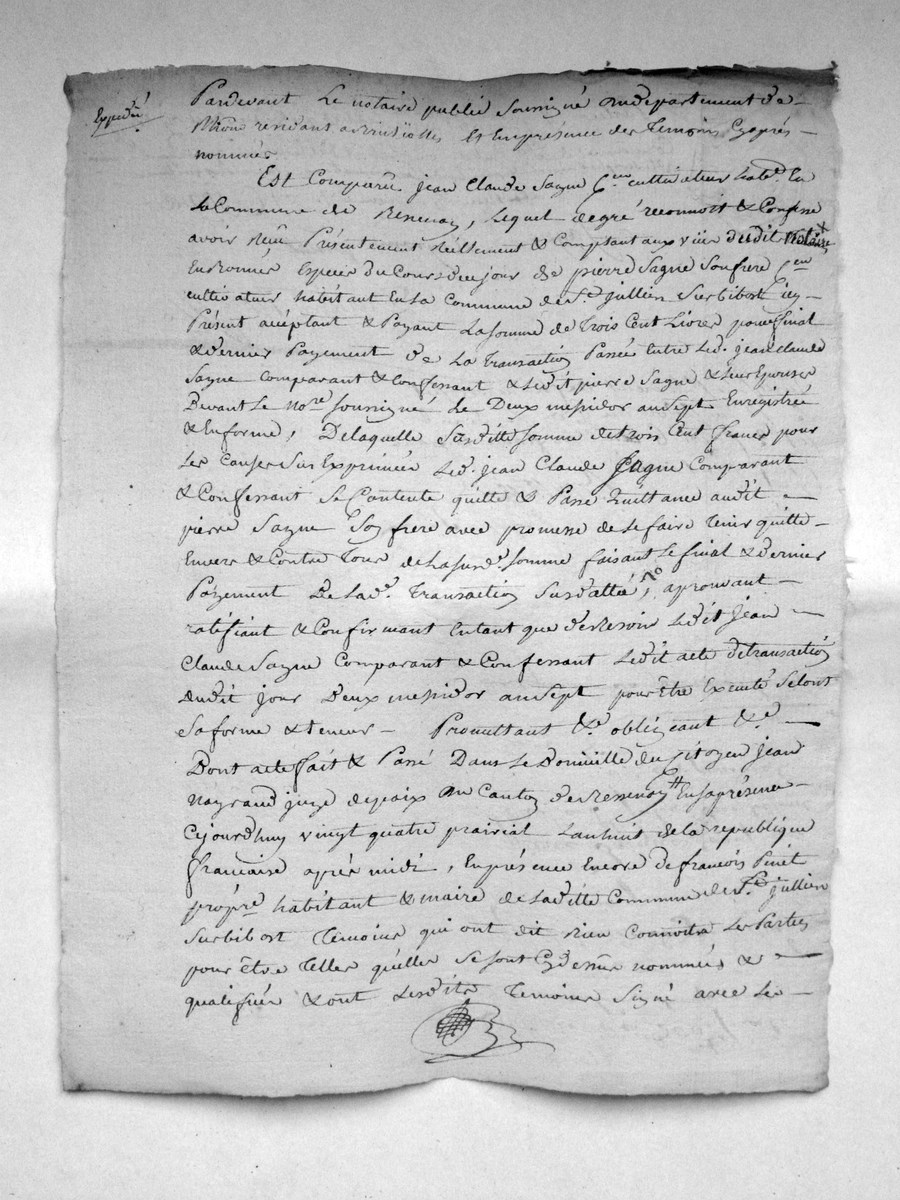 Expedié
Pardevant Le notaire public Soussigné au departement de
Rhône residant Et En présence des Temoins Cyaprés
nommés
Est Comparu jean Claude Sagne C.en cultivateur hab.t En
La Commune de Ressenay, Lequel de gré reconnoit & Confesse
avoir Reçu Présentement Réellement & Comptant aux vües dudit Notaire
En bonnes Especes du Cours de ce jour de pierre Sagne Son frere C.en
cultivateur habitant En La Commune de S.t jullien Sur bibost icy
Présent acceptant & Payant La somme de Trois Cent Livres pour final
& dernier Payement de La Transaction Passée Entre Led. jean Claude
Sagne Comparant & Confessant & Ledit pierre Sagne &
Devant Le no.re Soussigné Le Deux messidor an Sept Enregistrée
& En forme, De laquelle Susditte Somme de trois Cent francs pour
Les Causes Sus Exprimées Led. jean Claude Sagne Comparant
& Confessant Se Contente quitte & Passe Quittance audit
pierre Sagne Son frere avec promesse de Le faire Tenir quitte
Envers & Contre Tous de La susd.e Somme faisant Le final & dernier
Payement De Lad.e Transaction Susdattée, aprouvant
ratifiant & Confirmant En tant que de besoin Ledit jean
Claude Sagne Comparant & Confessant Ledit acte de transaction
dudit jour Deux messidor an Sept pour être Executé Selont
Sa forme & teneur Promettant &.c obligeant &.c
Dont acte fait & Passé Dans Le Domicille du Citoyen jean
Nayrand juge de paix du Canton de Ressenay En Sa présence
Cejourdhuy vingt quatre prairial Lan huit de la republique
francaise après midi, En présence Encore de francois Pinet
propr.e habitant & maire de Laditte Commune de S.t jullien
Sur bibost Temoins qui ont dit bien Connoitre Les Parties
pour être Telles quelles Se Sont Cy dessus nommées &
qualifiées & ont Lesdits Temoins Signé avec Les